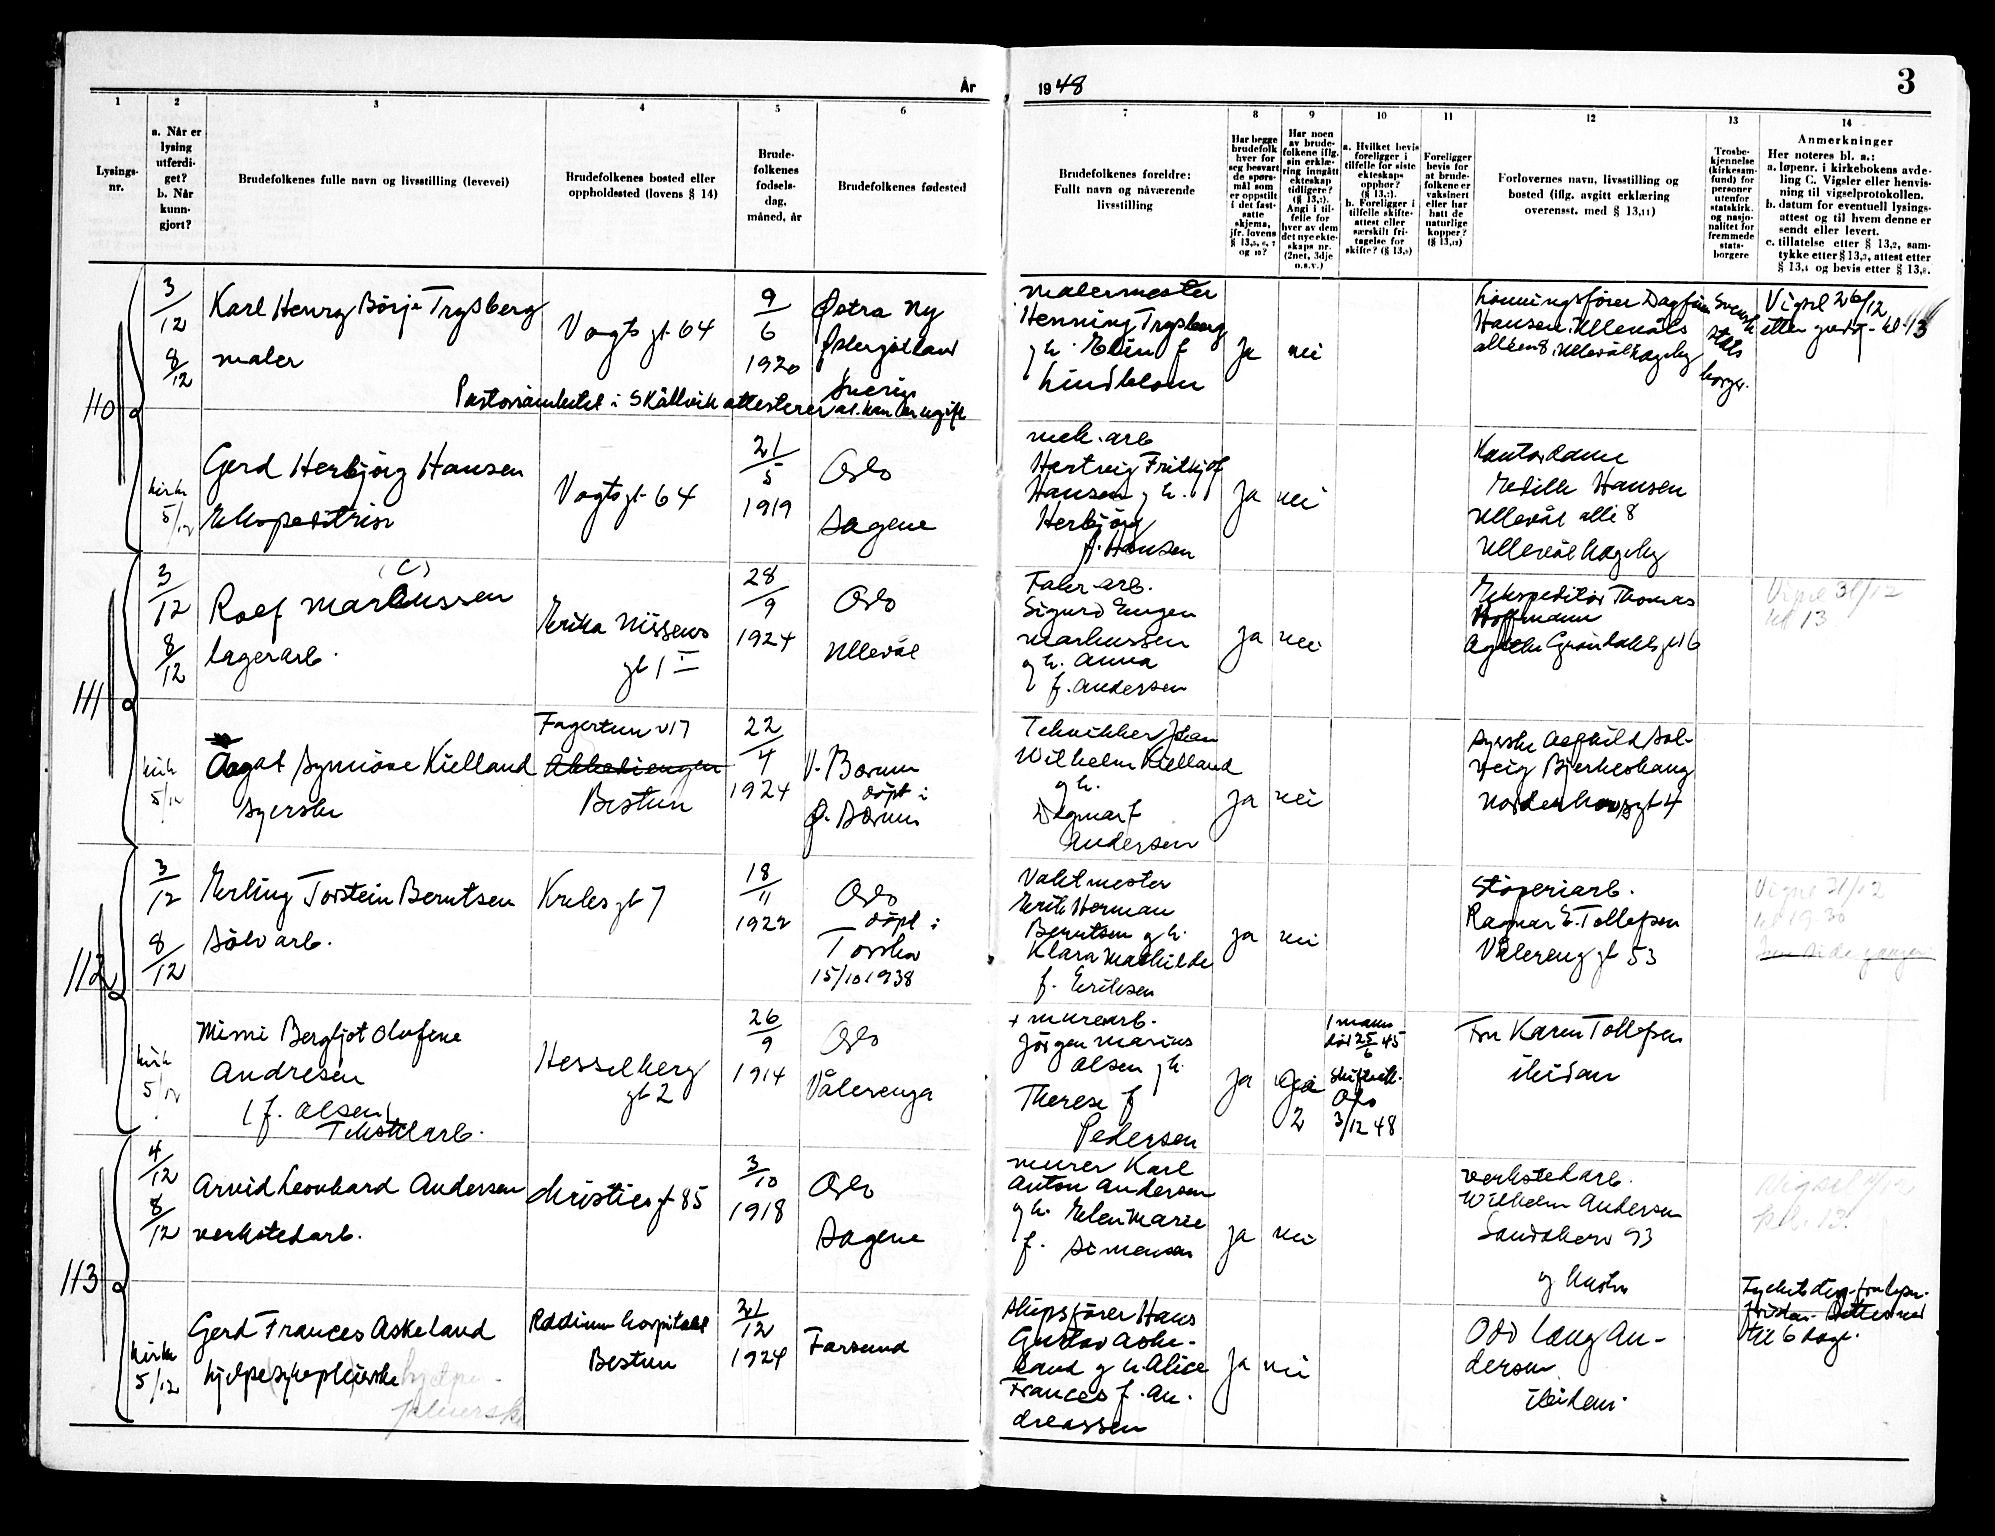 År
1948
3
1
2
3
4
5
6
7
8
9
10
11
12
13
14
Lysings-
nr.
a. Når er
lysing
utferdi-
get?
b. Når
kunn-
gjort?
Brudefolkenes fulle navn og livsstilling (levevei)
Brudefolkenes bosted eller
oppholdssted (lovens § 14)
Brude-
folkenes
fødsels-
dag,
måned, år
Brudefolkenes fødested
Brudefolkenes foreldre:
Fullt navn og nåværende
livsstilling
Har begge
brudefolk
hver for
seg besvart
de spørs-
mål som
er oppstilt
i det fast-
satte
skjema,
jfr. lovens
§ 13,5, 6, 7
og 10?
Har noen
av brude-
folkene iflg.
sin erklæ-
ring inngått
ekteskap
tidligere?
(§ 13,7).
Angi i til-
felle for
hver av dem
det nye ekte-
skaps nr.
(2net, 3dje
o.s.v.)
a. Hvilket bevis
foreligger i
tilfelle for siste
ekteskaps
opphør?
(§ 13,7).
b. Foreligger i
tilfelle skifte-
attest eller
særskilt fri-
tagelse for
skifte? (§ 13,9)
Foreligger
bevis for
at brude-
folkene er
vaksinert
eller har
hatt de
naturlige
kopper?
(§ 13,12)
Forlovernes navn, livsstilling og
bosted (iflg. avgitt erklæring
overensst. med § 13,11)
Trosbe-
kjennelse
(kirkesam-
fund) for
personer
utenfor
statskirk.
og nasjo-
nalitet for
fremmede
stats-
borgere
Anmerkninger
Her noteres bl. a.:
a. løpenr. i kirkebokens avde-
ling C. Vigsler eller henvis-
ning til vigselprotokollen.
b. datum for eventuell lysings-
attest og til hvem denne er
sendt eller levert.
c. tillatelse etter § 13,2, sam-
tykke etter § 13,3, attest etter
§ 13,4 og bevis etter § 13,8.
110
3/12
8/12
Karl Henry Börje Trysberg
maler
Vogts gt 64
9/6
1920
Østra Ny
Østergötland
Sverige
Pastorsämbetet i Skällvik attesterer at han er ugift
malermester
Henning Trysberg
og h. Elin f
Lindblom
Ja
nei
Lønningsfører Dagfinn
Hansen. Ullevåls
alleen 8, Ullevål hageby
Svensk
stats
borger.
Vigsel 26/12
etter gudst- kl 13
kirke
5/12
Gerd Herbjörg Hansen
Ekspeditrise
Vogts gt 64
21/5
1919
Oslo
Sagene
mek. arb
Hartvig Fritjof
Hansen og h.
Herbjörg
f. Hansen
Ja
nei
Kontordame
Edith Hansen
Ullevål allé 8
Ullevål hageby
111
3/12
8/12
(C)
Rolf Markussen
lagerarb.
Erika Nissens
gt 1 I
28/9
1924
Oslo
Ullevål
Fabr. arb.
Sigurd Eugen
Markussen
og h. Anna
f. Andersen
Ja
nei
Ekspeditör Thomas
Hoffmann
Agathe Gröndahls gt 6
Vigsel 31/12
kl 13.
kirk
5/12
Aagot Synnöve Kielland
syerske
Fagertun v 17
Abbediengen
Bestun
22/4
1924
V. Bærum
döpt i
Ø. Bærum
Tekniker Johan
Wilhelm Kielland
og h.
Dagmar f
Andersen
Ja
nei
Syerske Aaghild Sol-
veig Bjerkeshaug
Nordenhovs gt 4
112
3/12
8/12
Erling Torstein Berntsen
Sölvarb.
Krebs gt 7
18/11
1922
Oslo
döpt i
Torshov
15/10 1938
Vaktmester
Erik Herman
Berntsen og h.
Klara Mathilde
f. Eriksen
Ja
nei
Støperiarb.
Ragnar E. Tollefsen
Vålereng gt 53
Vigsel 31/12
kl 19.30
kirk
5/12
Mimi Bergljot Olufine
Andresen
(f. Olsen)
Tekstilarb.
Hesselberg
gt 2
26/9
1914
Oslo
Vålerenga
+ murearb.
Jörgen Marius
Olsen og h.
Therese f
Pedersen
Ja
Ja
2
1 mann
död 25/6 45
skifteatt.
Oslo
3/12 48
Fru Karen Tollefsen
ibidem
113
4/12
8/12
Arvid Leonhard Andersen
verkstedarb.
Christies gt 85
3/10
1918
Oslo
Sagene
murer Karl
Anton Andersen
og h. Elen Marie
f. Simensen
Ja
nei
verkstedarb.
Wilhelm Andersen
Sandakerv 93
og hustru
Vigsel 11/12
kl. 13.
kirke
5/12
Gerd Frances Askeland
hjelpesykepleierske
Radium hospitalet
Bestun
31/12
1924
Farsund
skipsfører Hans
Gustav Aske-
land og h. Alice
Frances f. An-
dreassen
Ja
nei
Odd Lang An-
dersen
ibidem.
til 6 dage.